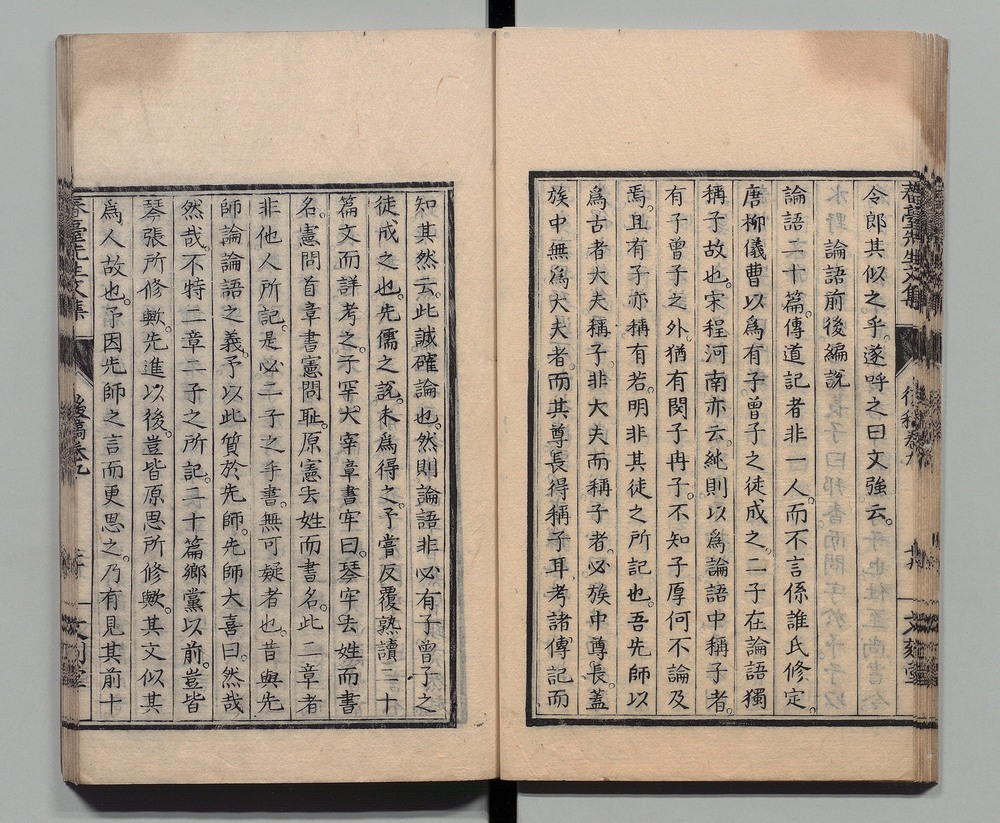 令郎其似之乎。遂呼之曰文強云。
論語前後編說
論語二十篇。傳道記者非一人。而不言係誰氏修定。
唐柳儀曹以爲有子曾子之徒成之。二子在論語獨
稱子故也。宋程河南亦云。純則以爲論語中稱子者。
有子曾子之外。猶有閔子冉子。不知子厚何不論及
焉。且有子亦稱有若。明非其徒之所記也。吾先師以
爲古者大夫稱子。非大夫而稱子者。必族中尊長。蓋
族中無爲大夫者。而其尊長得稱子耳考諸傳記而
知其然云。此誠確論也。然則論語非必有子曾子之
徒。成之也。先儒之說。未爲得之。予嘗反覆熟讀二十
篇文而詳考之。子罕大宰章書牢曰。琴牢去姓而書
名。憲問首章書憲問恥。原憲去姓而書名。此二章者
非他人所記。是必二子之手書。無可疑者也。昔與先
師論論語之義。予以此質於先師。先師大喜曰。然哉
然哉。不特二章二子之所記。二十篇鄉黨以前。豈皆
琴張所修歟。先進以後。豈皆原思所修歟。其文似其
爲人故也。予因先師之言而更思之。乃有見其前十
春臺先生文集
後稿卷九